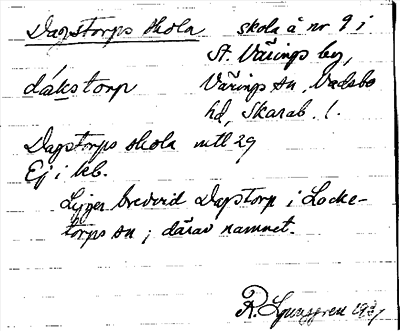 Dagstorps skola
skola å nr 9 i
St. Värings by,
dákstorp
Värings sn, Vadsbo
hd, Skarab. l.
Dagstorps skola mtl 29
Ej i kb.
Ligger bredvid Dagstorp i Locke-
torps sn; därav namnet.
R. Ljunggren